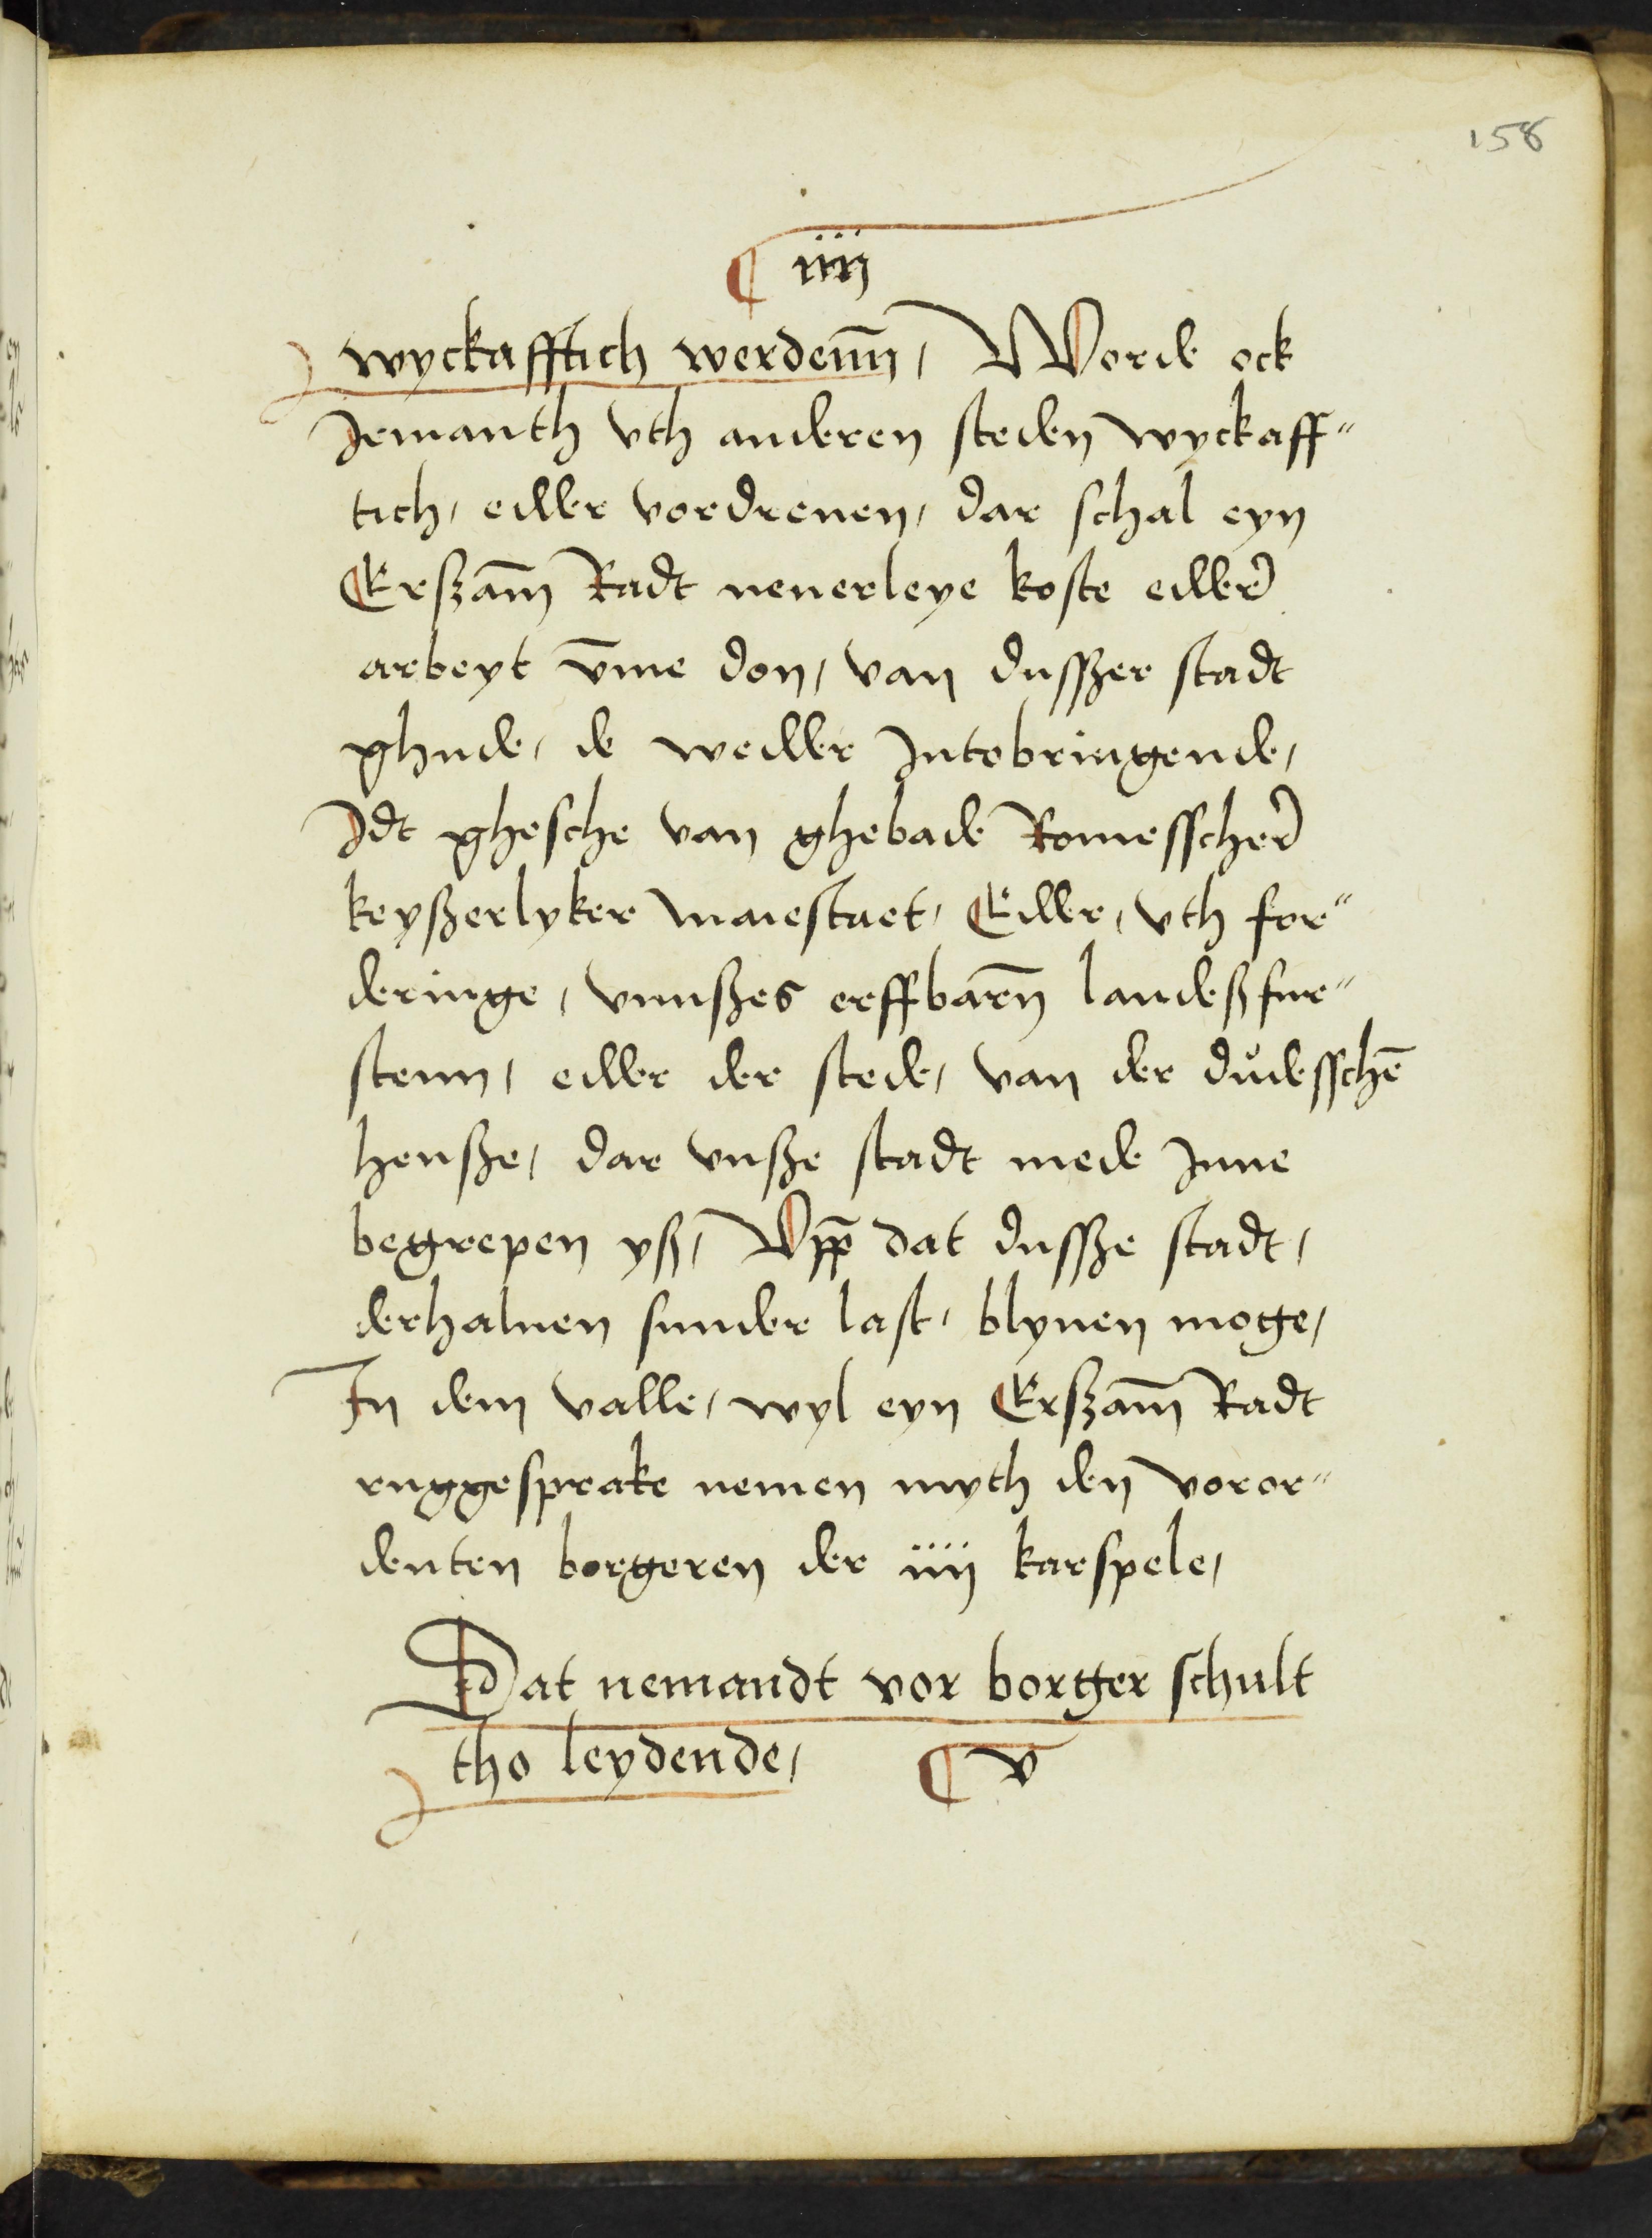 158
¶ iiij
wyckafftich werdenn̄, Worde ock
Jemanth vth anderen steden wyckaff"
tich, edder vordreuen, dar schal eyn
Erßam̄ Radt nenerleye koste edder
arbeyt vm̄e don, van dusszer stadt
ghude, de wedder Jntobringende,
Jdt ghesche van ghebade Romesscher
keyßerlyker maiestaet, Edder, vth for"
deringe, vnnßes erffbarn̄ landeßfur"
stenn, edder der stede, van der důdesschē
henße, dar vnße stadt mede Jnne
begrepen yß, Vpp̄ dat dussze stadt,
derhaluen sunder last, blyuen moge,
Jn dem valle, wyl eyn Erßam̄ Radt
ruggesprake nemen myth den voror"
denten borgeren der iiij karspele,
Dat nemandt vor borger schult
tho leydende, ¶ v